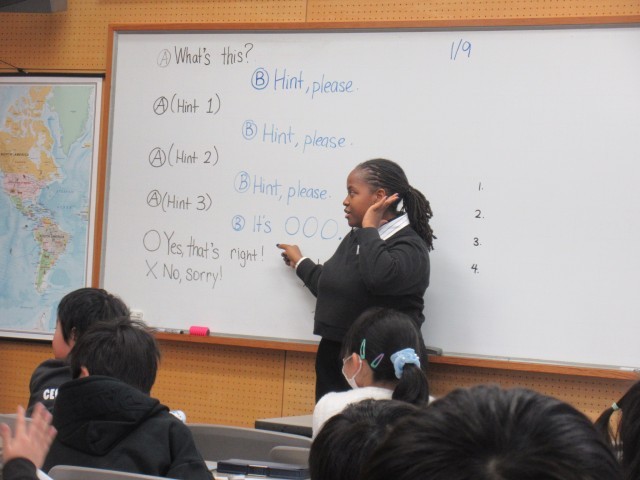 Ⓐ What's this?
1/9
Ⓑ Hint, please.
Ⓐ (Hint 1)
Ⓑ Hint, please.
Ⓐ (Hint 2)
Ⓑ Hint, please.
Ⓐ (Hint 3)
Ⓑ It's ○○○.
○ Yes, that's right!
X No, sorry!
1.
2.
3.
4.